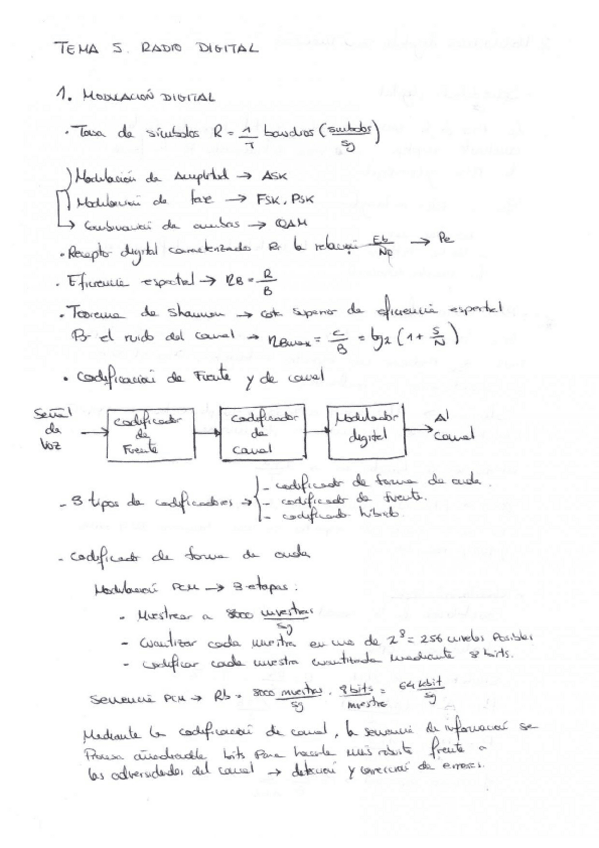 TEMA 5. RADIO DIGITAL
1. MODULACIÓN DIGITAL
· Tasa de símbolos R = 1/T baudios (símbolos/sg)
Modulación de Amplitud → ASK
Modulación de fase → FSK, PSK
Combinación de ambas → QAM
· Receptor digital caracterizado Por la relación Eb/No → Pe
· Eficiencia espectral → ηB = R/B
· Teorema de Shannon → cota superior de eficiencia espectral
Por el ruido del canal → ηBmax = C/B = log2 (1 + S/N)
· Codificación de Fuente y de canal
Señal de Voz → Codificador de Fuente → Codificador de Canal → Modulador digital → Al canal
- 3 tipos de codificadores →
- codificador de forma de onda.
- codificador de fuente.
- codificador híbrido.
- Codificador de forma de onda
Modulación PCM → 3 etapas:
- Muestrear a 8000 muestras/sg
- Cuantizar cada muestra en uno de 2^8 = 256 niveles Posibles
- Codificar cada muestra cuantizada mediante 8 bits.
Secuencia PCM → Rb = 8000 muestras/sg · 8 bits/muestra = 64 kbit/sg
Mediante la codificación de canal, la secuencia de información se
Procesa añadiendole bits Para hacerla más robusta frente a
las adversidades del canal → detección y corrección de errores.